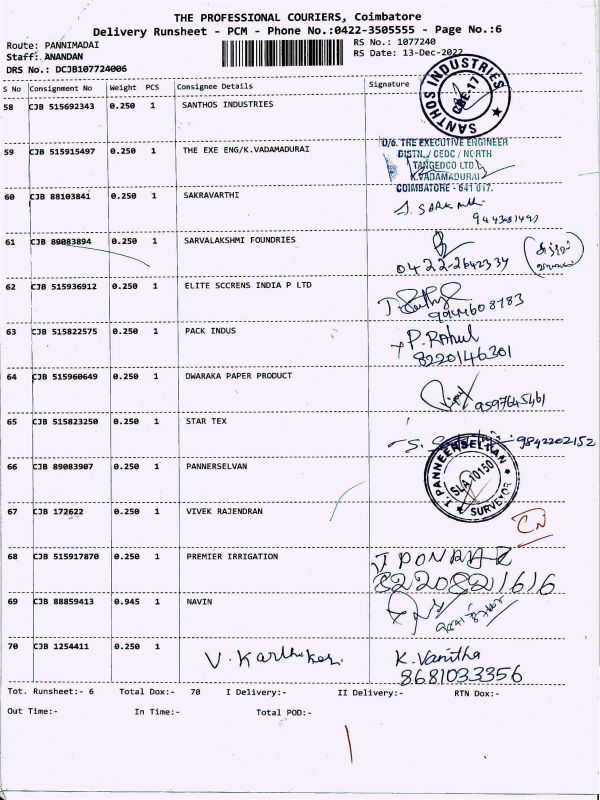 THE PROFESSIONAL COURIERS, Coimbatore
Delivery Runsheet - PCM - Phone No.:0422-3505555 - Page No.:6
Route: PANNIMADAI
RS No.: 1077240
Staff: ANANDAN
RS Date: 13-Dec-2022
DRS No.: DCJB107724006
S No Consignment No Weight PCS Consignee Details Signature
58 CJB 515692343 0.250 1 SANTHOS INDUSTRIES
SANTHOS INDUSTRIES CBE-17
59 CJB 515915497 0.250 1 THE EXE ENG/K.VADAMADURAI
D/o. THE EXECUTIVE ENGINEER
DISTN./ CEDC / NORTH
TANGEDCO LTD.,
K.VADAMADURAI
COIMBATORE - 641 017.
60 CJB 88103841 0.250 1 SAKRAVARTHI
61 CJB 89083894 0.250 1 SARVALAKSHMI FOUNDRIES
0422-2642334
62 CJB 515936912 0.250 1 ELITE SCCRENS INDIA P LTD
63 CJB 515822575 0.250 1 PACK INDUS
P. Rahul
8220146301
64 CJB 515960649 0.250 1 DWARAKA PAPER PRODUCT
9597645461
65 CJB 515823250 0.250 1 STAR TEX
9842202152
66 CJB 89083907 0.250 1 PANNERSELVAN
T. PANNEERSELVAN SLA 10150 SURVEYOR
67 CJB 172622 0.250 1 VIVEK RAJENDRAN
CN
68 CJB 515917870 0.250 1 PREMIER IRRIGATION
8220821616
69 CJB 88859413 0.945 1 NAVIN
70 CJB 1254411 0.250 1
V. Karthikas
K. Vanitha
8681033356
Tot. Runsheet:- 6 Total Dox:- 70 I Delivery:- II Delivery:- RTN Dox:-
Out Time:- In Time:- Total POD:-